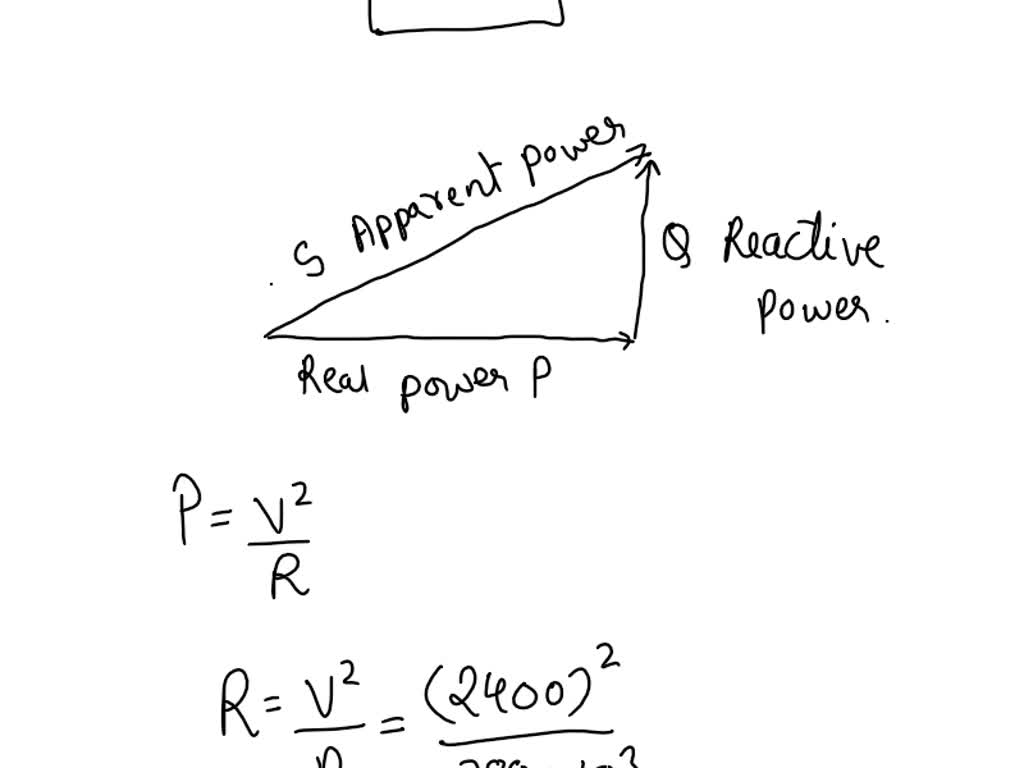 S Apparent power
Q Reactive
power.
Real power P
P = V²/R
R = V²/ = (2400)²/